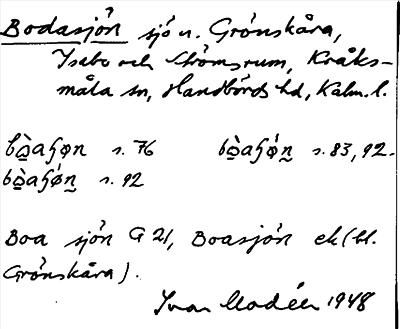 Bodasjön sjö u. Grönskåra,
Ysebo och Strömsrum, Kråks-
måla sn, Handbörds hd, Kalm. l.
bòaʃøn s. 76 bòaʃǿn s. 83, 92.
bòaʃǿn s. 92
Boa sjön G 21, Boasjön ek (bl.
Grönskåra).
Ivar Modéer 1948